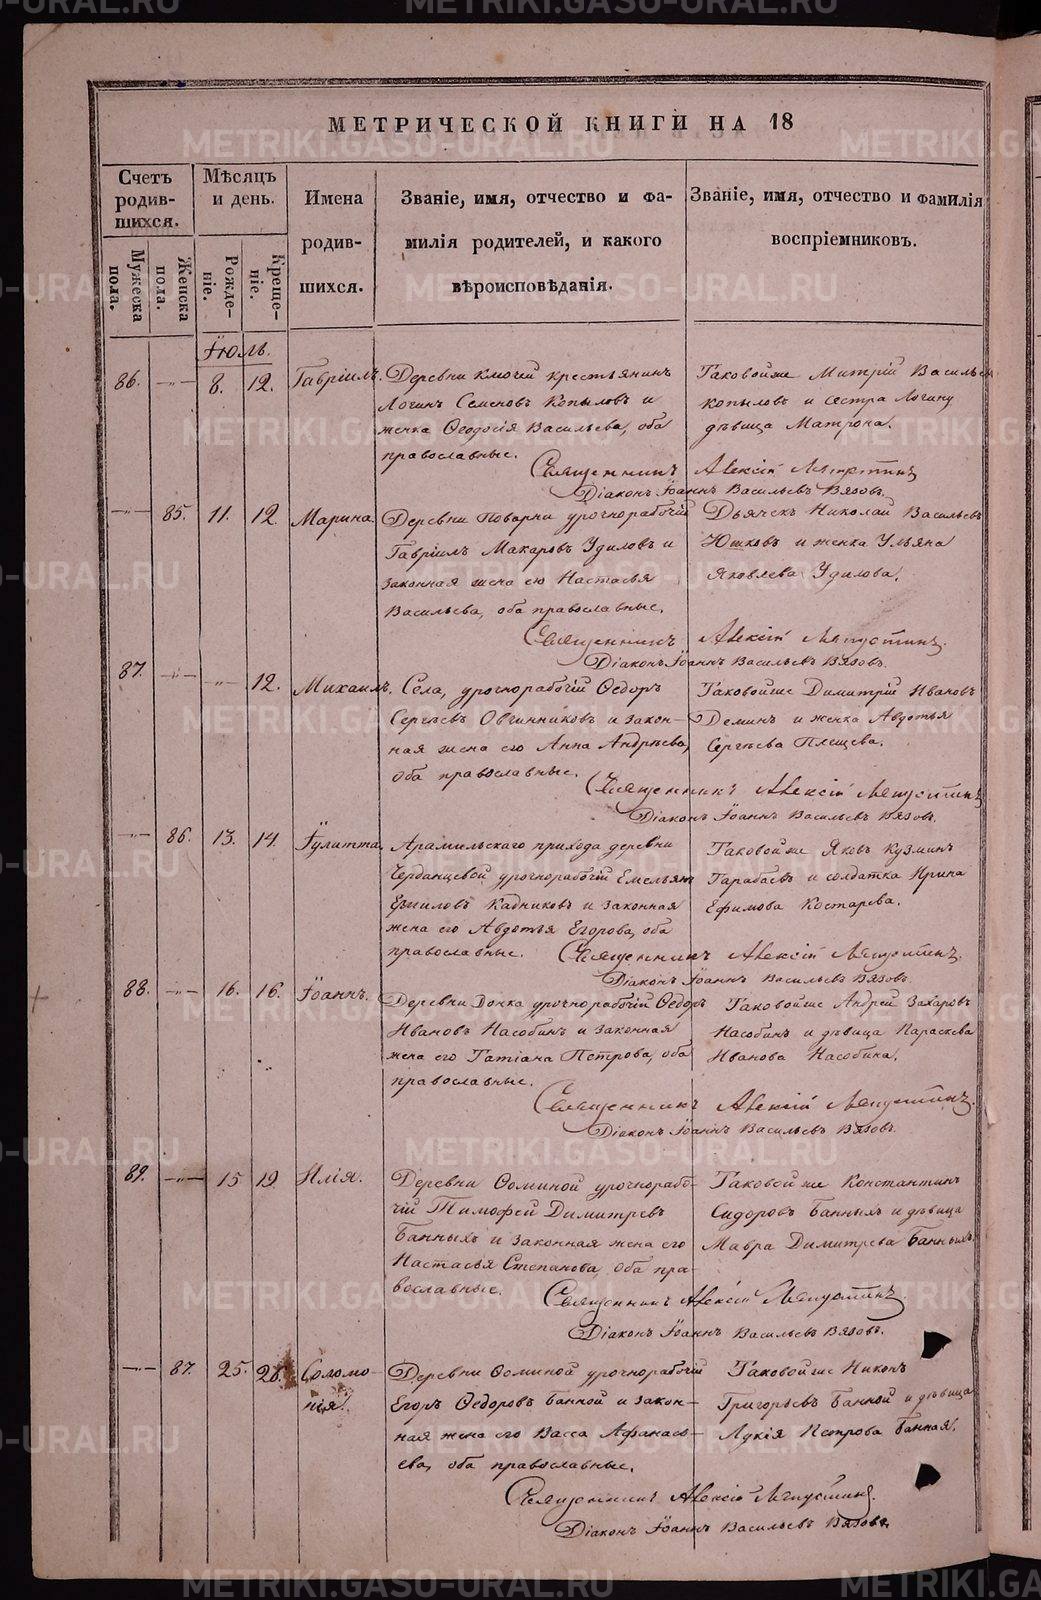 МЕТРИЧЕСКОЙ КНИГИ НА 18
Счетъ родив-шихся.
Мѣсяцъ и день.
Имена родив-шихся.
Званіе, имя, отчество и фа-
милія родителей, и какого
вѣроисповѣданія.
Званіе, имя, отчество и фамилія
воспріемниковъ.
Мужеска пола.
Женска пола.
Рожде-ніе.
Креще-ніе.
Іюль.
86. —"— 8. 12. Гавріилъ. Деревни Ключей крестьянинъ
Логинъ Семеновъ Копыловъ и
женка Ѳеодосія Васильева, оба
православные.
Таковойже Митрій Васильевъ
Копыловъ и сестра Логину
дѣвица Матрона.
Священникъ Алексій Ляпустинъ
Діаконъ Іоаннъ Васильевъ Вязовъ.
—"— 85. 11. 12. Марина. Деревни Поварни урочнорабочій
Гавріилъ Макаровъ Удиловъ и
законная жена ею Настасья
Васильева, оба православные.
Дьячекъ Николай Васильевъ
Юшковъ и женка Ульяна
Яковлева Удилова.
Священникъ Алексій Ляпустинъ.
Діаконъ Іоаннъ Васильевъ Вязовъ.
87. —"— —"— 12. Михаилъ. Села, урочнорабочій Ѳедоръ
Сергѣевъ Овчинниковъ и закон-
ная жена его Анна Андрѣева,
оба православные.
Таковойже Димитрій Ивановъ
Деминъ и женка Авдотья
Сергѣева Плещева.
Священникъ Алексій Ляпустинъ
Діаконъ Іоаннъ Васильевъ Вязовъ.
—"— 86. 13. 14. Іулитта. Арамильскаго прихода деревни
Черданцевой урочнорабочій Емельянъ
Кадниковъ и законная
жена его Авдотья Егорова, оба
православные.
Таковойже Яковъ Кузминъ
Тарабаевъ и солдатка Ирина
Ефимова Костарева.
Священникъ Алексій Ляпустинъ.
Діаконъ Іоаннъ Васильевъ Вязовъ.
88. —"— 16. 16. Іоаннъ. Деревни урочнорабочій Ѳедоръ
Ивановъ Насобинъ и законная
жена его Татіана Петрова, оба
православные.
Таковойже Андрей Захаровъ
Насобинъ и дѣвица Параскева
Иванова Насобина.
Священникъ Алексій Ляпустинъ.
Діаконъ Іоаннъ Васильевъ Вязовъ.
89. —"— 15 19. Илія. Деревни Ѳоминой урочнорабо-
чій Тимофей Димитревъ
Банныхъ и законная жена его
Настасья Степанова, оба пра-
вославные.
Таковойже Константинъ
Сидоровъ Банныхъ и дѣвица
Мавра Димитрева Банныхъ.
Священникъ Алексій Ляпустинъ.
Діаконъ Іоаннъ Васильевъ Вязовъ.
—"— 87. 25. 28. Соломо-
нія. Деревни Ѳоминой урочнорабочій
Егоръ Ѳедоровъ Банной и закон-
ная жена его Васса Афанась-
ева, оба православные.
Таковойже Никонъ
Григорьевъ Банной и дѣвица
Лукія Петрова Банная.
Священникъ Алексій Ляпустинъ.
Діаконъ Іоаннъ Васильевъ Вязовъ.
METRIKI.GASO-URAL.RU